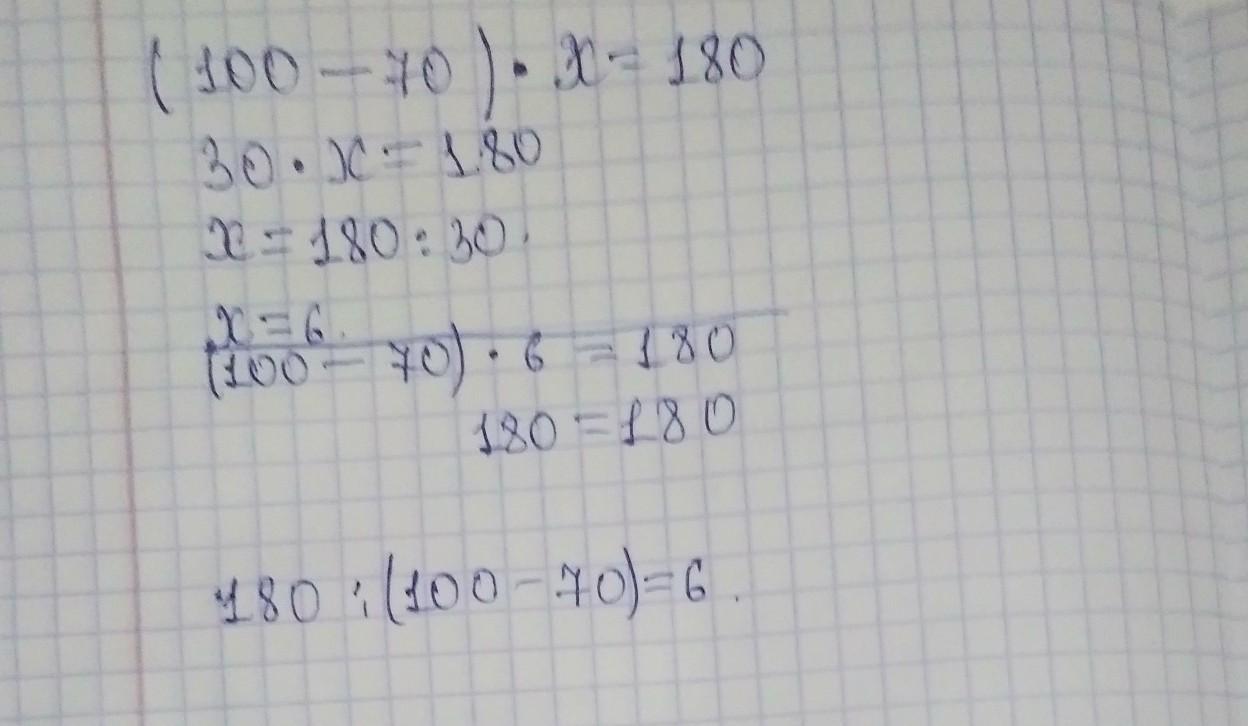 (100 - 70) · x = 180
30 · x = 180
x = 180 : 30.
x = 6.
(100 - 70) · 6 = 180
180 = 180
180 : (100 - 70) = 6.